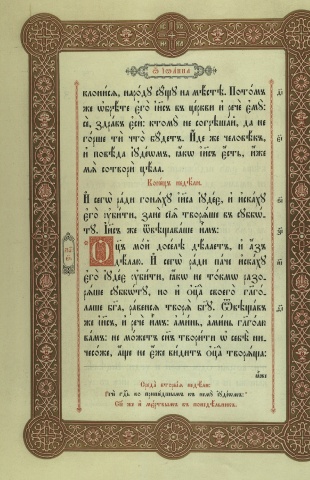 Ѿ Іѡа́нна
клони́сѧ, наро́дꙋ сꙋ́щꙋ на мѣ́стѣ. Пото́мъ
же ѡ҆брѣ́те є҆го̀ і҆и҃съ въ це́ркви и҆ речѐ є҆мꙋ̀:
сѐ, здра́въ є҆сѝ: ктомꙋ̀ не согрѣша́й, да не
го́рше тѝ что̀ бꙋ́детъ. И҆́де же человѣ́къ,
и҆ повѣ́да і҆ꙋде́ѡмъ, ꙗ҆́кѡ і҆и҃съ є҆́сть, и҆́же
мѧ̀ сотворѝ цѣ́ла.
Коне́цъ недѣ́ли.
И҆ сегѡ̀ ра́ди гонѧ́хꙋ і҆и҃са і҆ꙋде́є, и҆ и҆ска́хꙋ
є҆го̀ ᲂу҆би́ти, занѐ сїѧ̑ творѧ́ше въ сꙋббѡ́-
тꙋ. І҆и҃съ же ѿвѣщава́ше и҆̀мъ:
Ѻ҆ц҃ъ мо́й досе́лѣ дѣ́лаетъ, и҆ а҆́зъ
дѣ́лаю. И҆ сегѡ̀ ра́ди па́че и҆ска́хꙋ
є҆го̀ і҆ꙋде́є ᲂу҆би́ти, ꙗ҆́кѡ не то́кмѡ разо-
рѧ́ше сꙋббѡ́тꙋ, но и҆ ѻ҆ц҃а̀ своего̀ глаго́-
лаше бг҃а, ра́венсѧ творѧ̀ бг҃ꙋ. Ѿвѣща́въ
же і҆и҃съ, и҆ речѐ и҆̀мъ: а҆ми́нь, а҆ми́нь глаго́лю
ва́мъ: не мо́жетъ сн҃ъ твори́ти ѡ҆ себѣ̀ ни-
чесо́же, а҆́ще не є҆́же ви́дитъ ѻ҆ц҃а̀ творѧ́ща:
Среда̀ вторы́ѧ недѣ́ли:
Речѐ гд҇ь ко прише́дшымъ къ немꙋ̀ і҆ꙋде́ѡмъ: